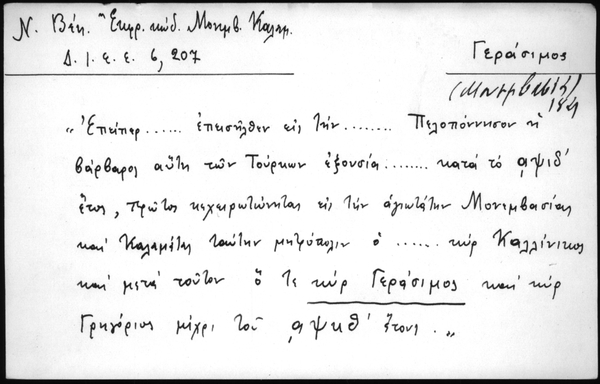 Ν. Βέη. "Εκφρ. κώδ. Μονεμβ. Καλαμ.
Δ. Ι. Ε. Ε. 6, 207
Γεράσιμος
(Μονεμβασία)
"Ἐπείπερ ...... ἐπεισῆλθεν εἰς τὴν ........ Πελοπόννησον ἡ
βάρβαρος αὕτη τῶν Τούρκων ἐξουσία ........ κατὰ τὸ ͵αψιδ΄
ἔτος, πρῶτος κεχειροτώνηται εἰς τὴν ἁγιωτάτην Μονεμβασίας
καὶ Καλαμάτης ταύτην μητρόπολιν ὁ ...... κὺρ Καλλίνικος
καὶ μετὰ τοῦτον ὅ τε κὺρ Γεράσιμος καὶ κὺρ
Γρηγόριος μέχρι τοῦ ͵αψκθ΄ ἔτους. "